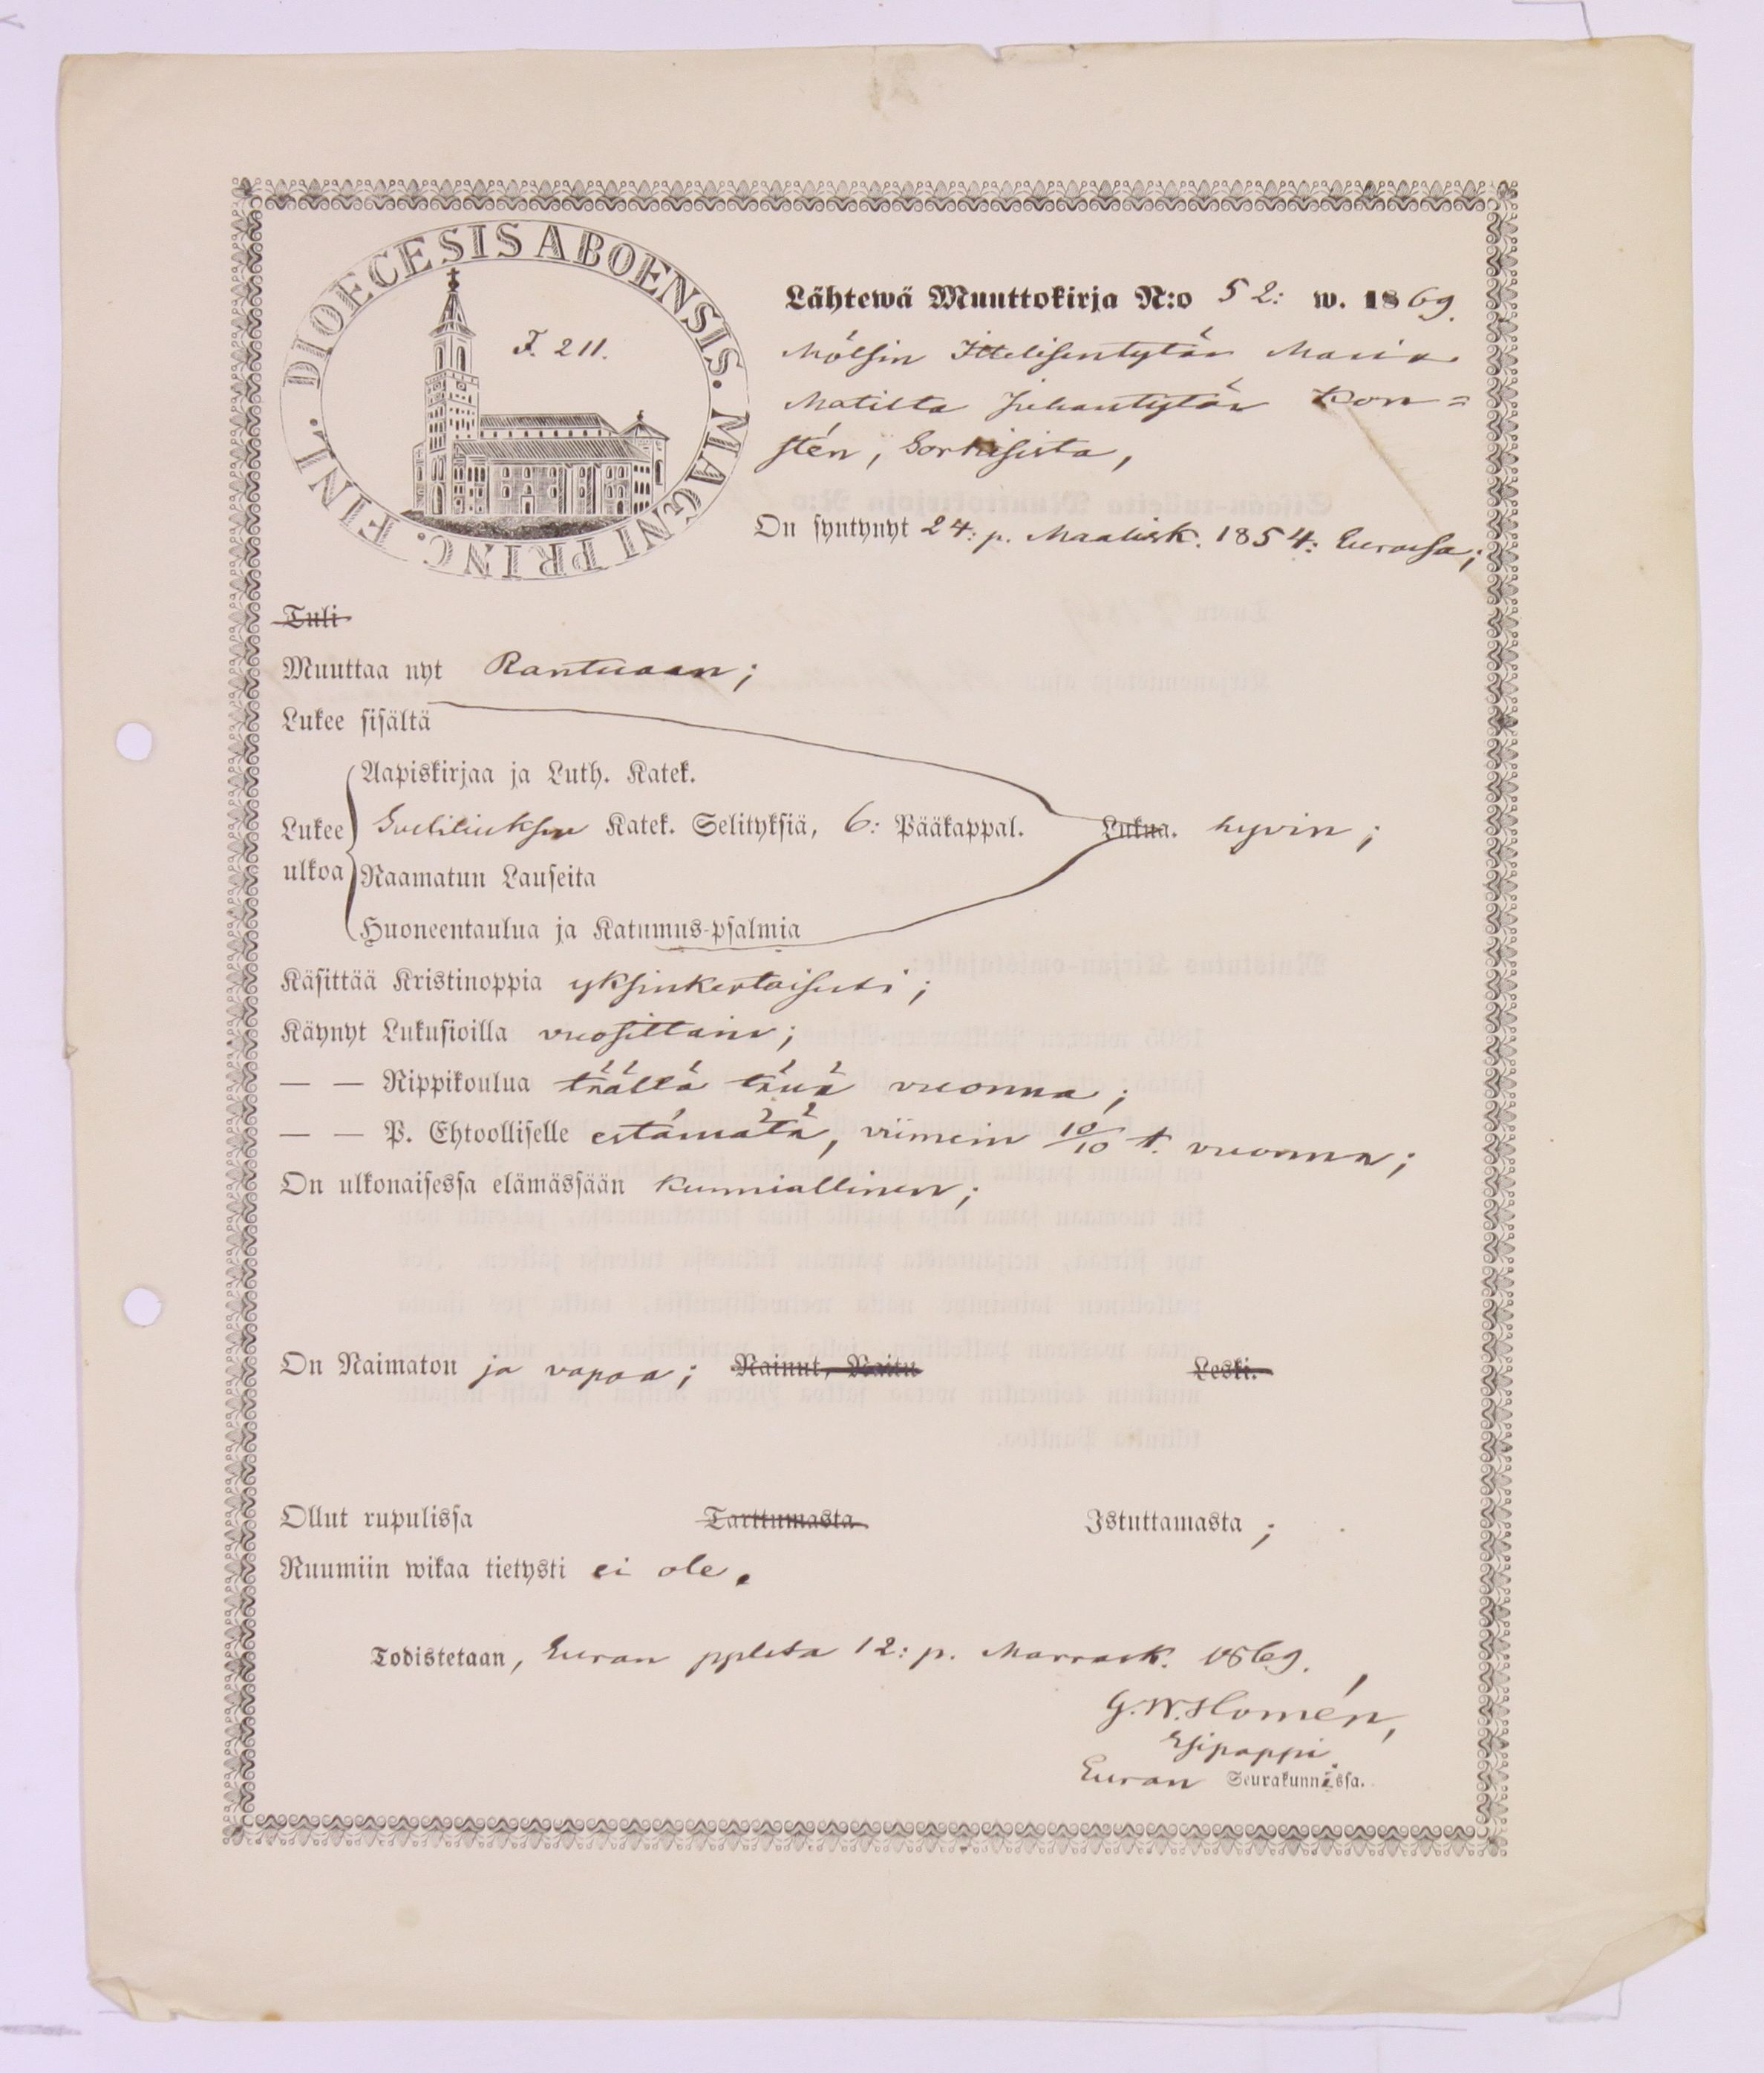 DIOECESIS ABOENSIS. MAGNI PRINC. FINL.
F. 211.
Lähtewä Muuttokirja N:o 52: w. 1869.
Mölsin Ittelisentytär Maria
Matilta Juhantytär Kon=
stén, Sorkisista,
On syntynyt 24: p. Maalisk. 1854: Eurassa;
Tuli
Muuttaa nyt Rantuaan;
Lukee sisältä
Aapiskirjaa ja Luth. Katek.
Lukee ulkoa Sveliliuksen Katek. Selityksiä, 6: Pääkappal. Lukua. hyvin;
Raamatun Lauseita
Huoneentaulua ja Katumus-psalmia
Käsittää Kristinoppia yksinkertaisesti;
Käynyt Lukusioilla vuosittain;
— — Rippikoulua täällä tänä vuonna;
— — P. Ehtoolliselle estämätä, viimein 10/10 t. vuonna;
On ulkonaisessa elämässään kunniallinen;
On Naimaton ja vapaa; Nainut, Naitu Leski.
Ollut rupulissa Tarttumasta Istuttamasta;
Ruumiin wikaa tietysti ei ole.
Todistetaan, Euran ppleta 12: p. Marrask. 1869.
G. W. Homén,
Esipappi
Euran Seurakunnassa.